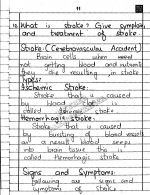 11
What is stroke? Give symptoms
and treatment of stroke.
Stroke (Cerebrovascular Accident)
Brain cells when need
not getting blood and nutrients
they die resulting in stroke
Types:-
Ischemic Stroke:-
Stroke that is caused
by blood clot is
called Ischemic stroke.
Hemorrhagic stroke:-
Stroke that is caused
by bursting of blood vessels
as a result blood seeps
into brain tissue this is
called Hemorrhagic stroke
Signs and Symptoms
Following are signs and
symptoms of stroke